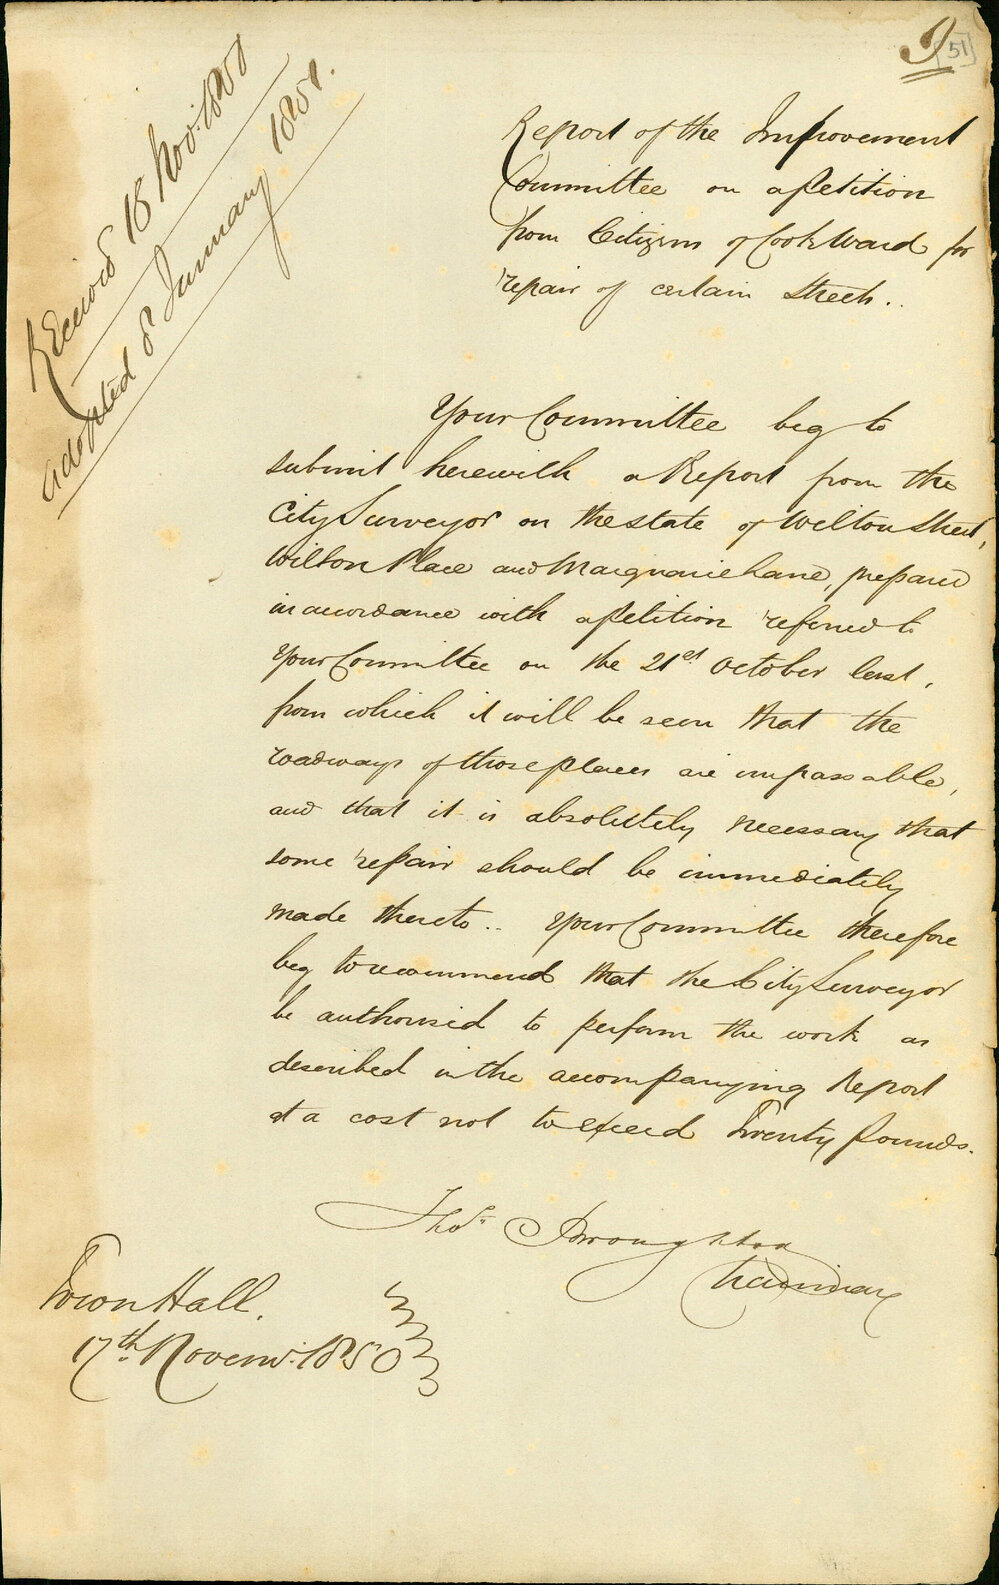 9
[51]
Received 18 Nov: 1850
Adopted 8 January 1851.
Report of the Improvement
Committee on a Petition
from Citizens of Cook Ward for
repair of certain Streets..
Your Committee beg to
submit herewith a Report from the
City Surveyor on the state of Wilton Street,
Wilton Place and Macquarie Lane, prepared
in accordance with a Petition referred to
Your Committee on the 21st October last,
from which it will be seen that the
roadways of those places are impassable,
and that it is absolutely necessary that
some repair should be immediately
made thereto.. Your Committee therefore
beg to recommend that the City Surveyor
be authorised to perform the work as
described in the accompanying Report
at a cost not to exceed Twenty Pounds.
Thos. Broughton
Chairman
Town Hall.
17th Novem: 1850